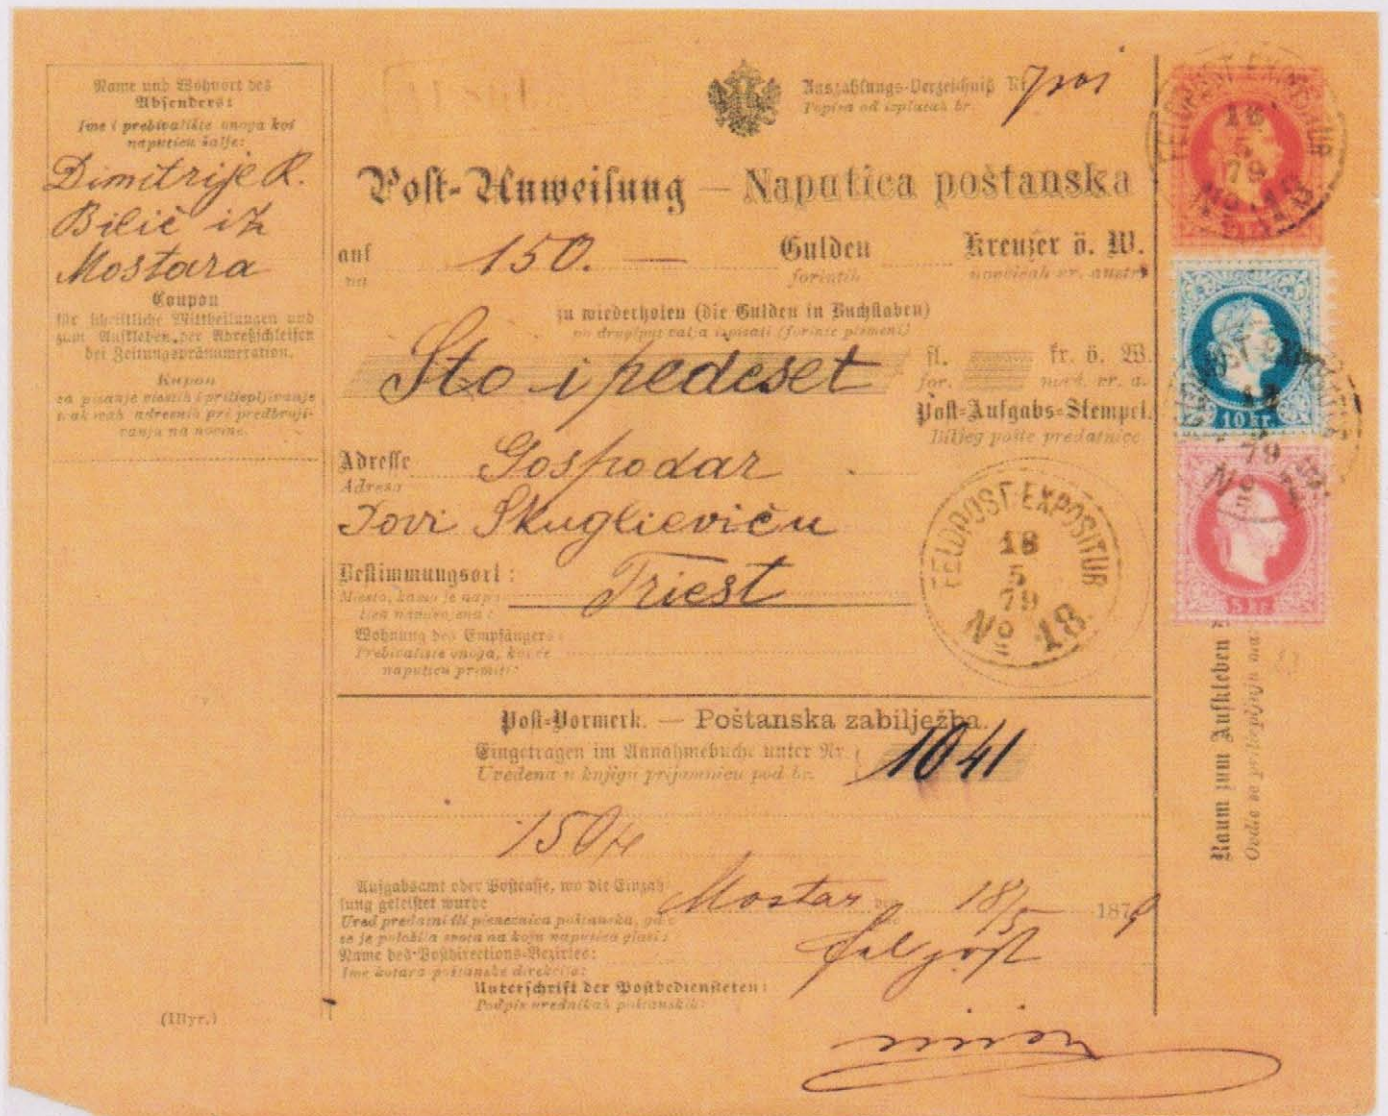 Name und Wohnort des
Absenders:
Ime i prebivalište onoga koi
naputicu šalje:
Dimitrije R.
Bilić iz
Mostara
Coupon
für schriftliche Mittheilungen und
zum Aufkleben der Adreßschleifen
bei Zeitungspränumeration.
Kupon
za pisanje viestih i priliepljivanje
ovakovah adresnih pri predbroji-
vanju na novine.
(Illyr.)
Auszahlungs-Verzeichniß Nr.
Popira od izplatah br.
Post-Anweisung — Naputica poštanska
auf 150. — Gulden Kreuzer ö. W.
na forintih novčićah vr. austr.
zu wiederholen (die Gulden in Buchstaben)
(forinte pismeni)
Sto i pedeset fl. kr. ö. W.
for. novč. vr. a.
Post-Aufgabs-Stempel.
Biljeg pošte predatnice
Adresse Gospodar
Adresa
Jovi Skuglieviću
Bestimmungsort: Triest
Miesto, kamo je napu-
tica napravjena:
Wohnung des Empfängers:
Prebivalište onoga, koi će
naputicu primiti:
FELDPOST-EXPOSITUR
18
5
79
No 18.
Post-Vormerk. — Poštanska zabilježba.
Eingetragen im Annahmebuche unter Nr. 1041
Uvedena u knjigu prijamnicu pod br.
150
Aufgabsamt oder Postcasse, wo die Einzah-
lung geleistet wurde Mostar den 18/5 1879
Ured predatni ili pieneznica poštanska, gdje
se je položila svota na koju naputica glasi:
Name des Postdirections-Bezirkes: Feldpost
Ime kotara poštanske direkcije:
Unterschrift der Postbediensteten:
Podpis urednikah poštanskih:
FELDPOST-EXPOSITUR
18
5
79
No 18
10 kr.
FELDPOST-EXPOSITUR
18
79
No 18.
5 kr.
Raum zum Aufkleben
Ovdie se priliepljuju